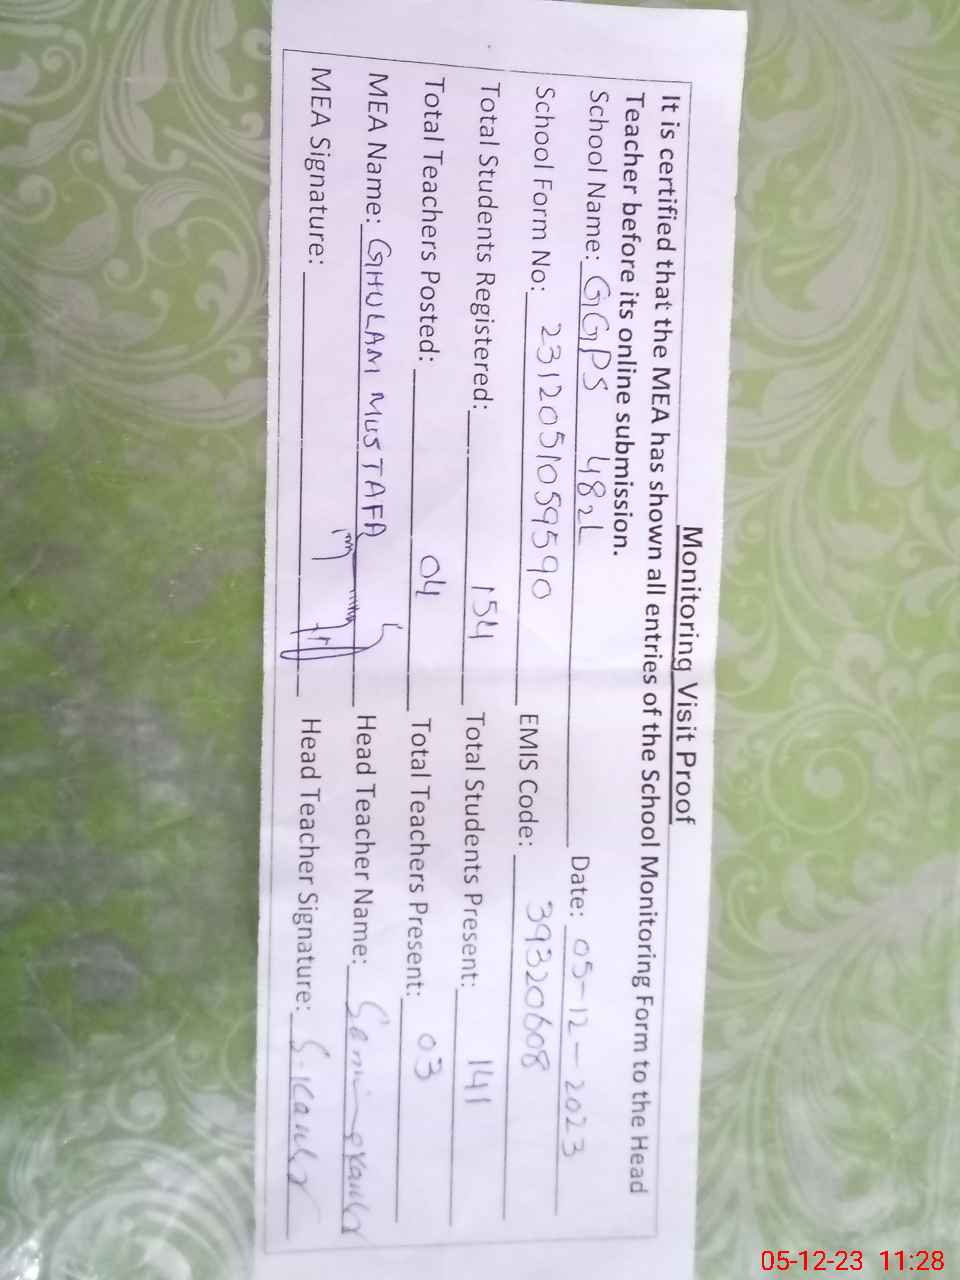 Monitoring Visit Proof
It is certified that the MEA has shown all entries of the School Monitoring Form to the Head
Teacher before its online submission.
School Name: GGPS 482L Date: 05-12-2023
School Form No: 2312051059590 EMIS Code: 39320608
Total Students Registered: 154 Total Students Present: 141
Total Teachers Posted: 04 Total Teachers Present: 03
MEA Name: GHULAM MUSTAFA Head Teacher Name:
MEA Signature: Head Teacher Signature:
05-12-23 11:28